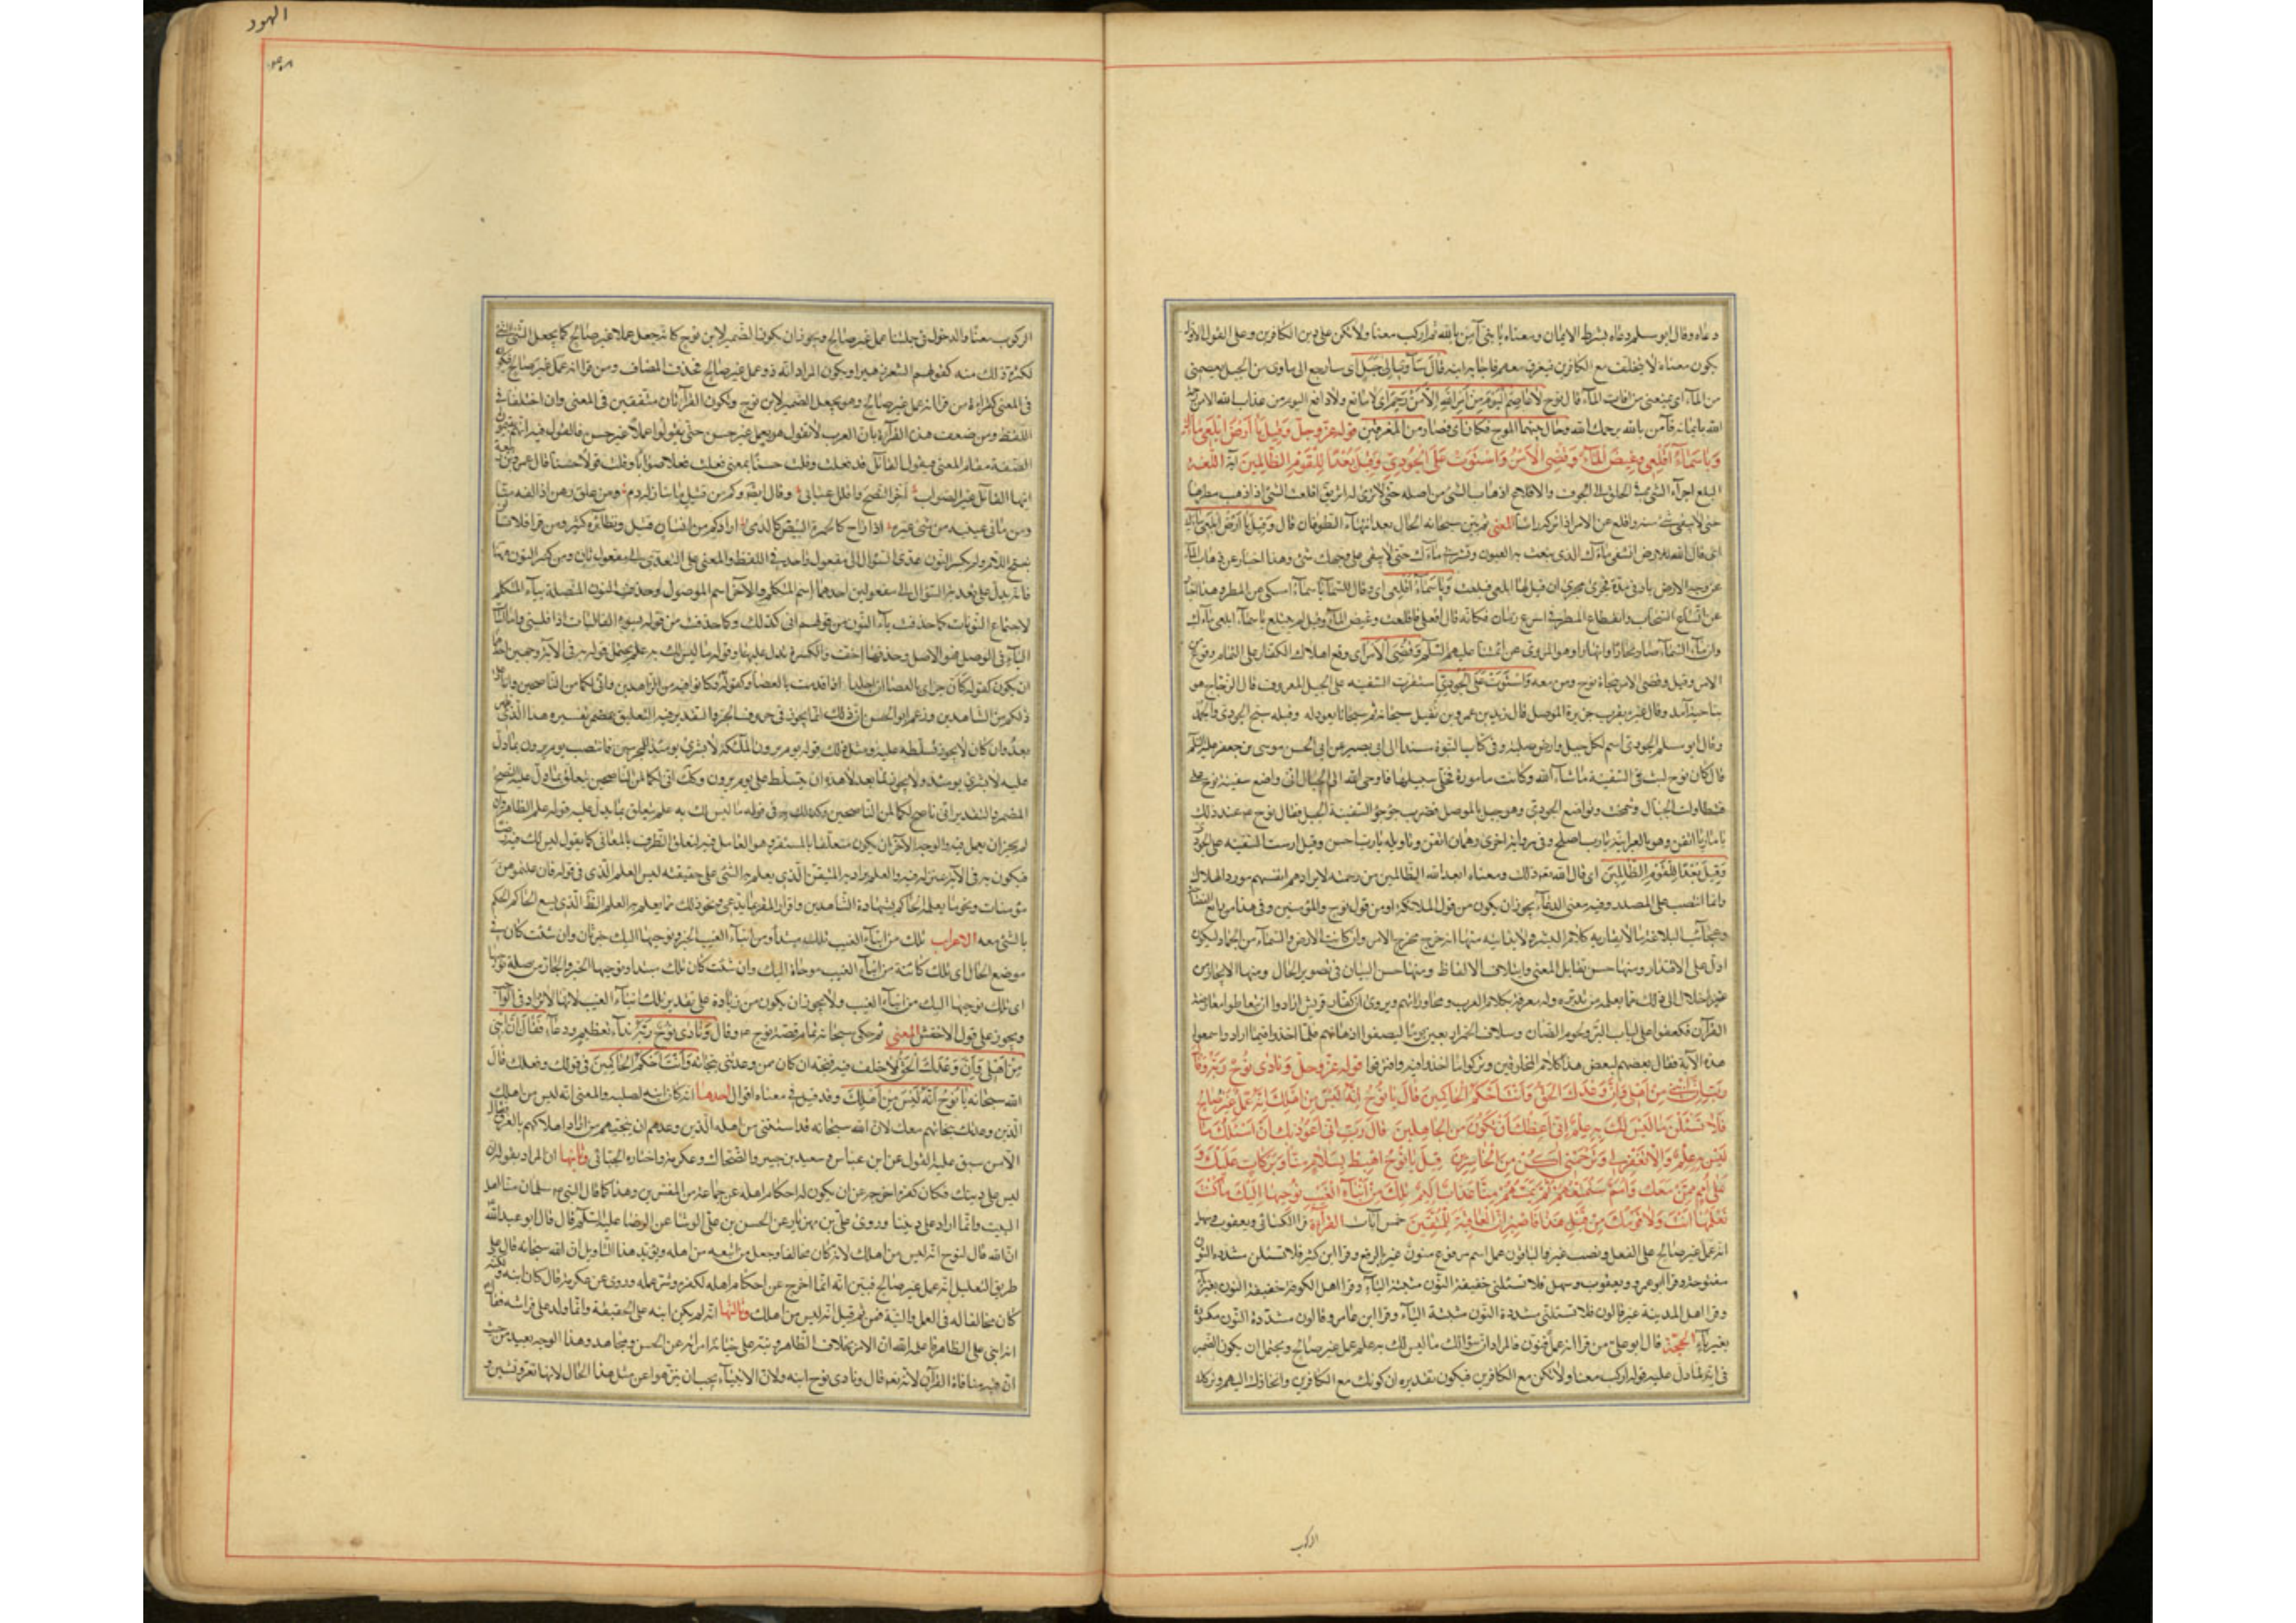 دعاه وقال ابو مسلم دعاه بشرط الايمان ومعناه يا بنى آمن بالله ثم اركب معنا ولا تكن على دين الكافرين وعلى القول الاول
يكون معناه لا تتخلف مع الكافرين فتغرق معهم فاجابه ابنه قَالَ سَآوِي إِلَى جَبَلٍ اى سارجع الى ماوى من الجبل يعصمنى
من الماء اى يمنعنى من آفات الماء قال نوح لَا عَاصِمَ الْيَوْمَ مِنْ أَمْرِ اللَّهِ إِلَّا مَنْ رَحِمَ اى لا مانع ولا دافع اليوم من عذاب الله الا من رحمه
الله بايمانه فآمن بالله يرحمك الله وَحَالَ بَيْنَهُمَا الموج فكان اى فصار من المغرقين قوله عز وجل وَقِيلَ يَا أَرْضُ ابْلَعِي مَاءَكِ
وَيَا سَمَاءُ أَقْلِعِي وَغِيضَ الْمَاءُ وَقُضِيَ الْأَمْرُ وَاسْتَوَتْ عَلَى الْجُودِيِّ وَقِيلَ بُعْدًا لِلْقَوْمِ الظَّالِمِينَ آية اللغة
البلع اجراء الشئ فى الحلق الى الجوف والاقلاع اذهاب الشئ من اصله حتى لا يرى له اثر يق اقلعت السماء اذا ذهب مطرها
حتى لا يبقى شئ منه واقلع عن الامر اذا تركه راسا المعنى ثم بين سبحانه الحال بعد انتهاء الطوفان قال وَقِيلَ يَا أَرْضُ ابْلَعِي مَاءَكِ
اى قال الله للارض انشفى ماءك الذى نبعت به العيون واشربى ماءك حتى لا يبقى على وجهك شئ وهذا اخبار عن ذهاب الماء
عن وجه الارض باوجز مدة فجرى مجرى ان قيل لها ابلعى فبلعت وَيَا سَمَاءُ أَقْلِعِي اى وقال للسماء يا سماء امسكى عن المطر وهذا اخبار
عن اقشاع السحاب وانقطاع المطر فى اسرع زمان فكانه قال اقلعى فاقلعت وغيض الماء
وان ماء السماء صار بحارا وانهارا وهو المروى عن ائمتنا عليهم السلم وَقُضِيَ الْأَمْرُ اى وقع اهلاك الكفار على التمام وفرغ من
الامر وقيل وقضى الامر بنجاة نوح ومن معه وَاسْتَوَتْ عَلَى الْجُودِيِّ استقرت السفينه على الجبل المعروف قال الزجاج هو
بناحية آمد وقال غيره بقرب جزيرة الموصل قال زيد بن عمرو بن نفيل سبحانه ثم سبحانا يعود له وقبله سبح الجودى والجمد
وقال ابو مسلم الجودى اسم لكل جبل وارض صلبة وفى كتاب النبوة مسندا الى ابى بصير عن ابى الحسن موسى بن جعفر عليه السلم
قال كان نوح لبث فى السفينة ما شاء الله وكانت مامورة فخلى سبيلها فاوحى الله الى الجبال انى واضع سفينة نوح على
فتطاولت الجبال وشمخت وتواضع الجودى وهو جبل بالموصل فضرب جؤجؤ السفينة الجبل فقال نوح ع عند ذلك
يا ماريا اتقن وهو بالعربية يا رب اصلح وفى رواية اخرى رهمان اتقن وتاويله يا رب احسن وقيل ارست السفينه على الجودى
وَقِيلَ بُعْدًا لِلْقَوْمِ الظَّالِمِينَ اى قال الله تعالى ذلك ومعناه ابعد الله الظالمين من رحمته لايرادهم انفسهم مورد الهلاك
وانما انتصب على المصدر وفيه معنى الدعاء يجوز ان يكون من قول الملائكة او من قول نوح والمؤمنين وفى هذا من بدائع الفصاحة
وعجائب البلاغة ما لا يقاربه كلام البشر ولا يدانيه منها انه خرج مخرج الامر وان كانت الارض والسماء من الجماد ليكون
ادل على الاقتدار ومنها حسن تقابل المعنى وايتلاف الالفاظ ومنها حسن البيان فى تصوير الحال ومنها الايجاز من
غير اخلال الى ذلك مما يعلم من تدبره وله معرفة بكلام العرب ومحاوراتهم ويروى ان كفار قريش ارادوا ان يتعاطوا معارضة
القرآن فعكفوا على لباب البر ولحوم الضان وسلاف الخمر اربعين يوما ليصفوا اذهانهم فلما اخذوا فيما ارادوا وسمعوا
هذه الآية فقال بعضهم لبعض هذا كلام المخلوقين وتركوا ما اخذوا فيه وافترقوا قوله عز وجل وَنَادَى نُوحٌ رَبَّهُ فَقَالَ
رَبِّ إِنَّ ابْنِي مِنْ أَهْلِي وَإِنَّ وَعْدَكَ الْحَقُّ وَأَنْتَ أَحْكَمُ الْحَاكِمِينَ قَالَ يَا نُوحُ إِنَّهُ لَيْسَ مِنْ أَهْلِكَ إِنَّهُ عَمَلٌ غَيْرُ صَالِحٍ
فَلَا تَسْأَلْنِ مَا لَيْسَ لَكَ بِهِ عِلْمٌ إِنِّي أَعِظُكَ أَنْ تَكُونَ مِنَ الْجَاهِلِينَ قَالَ رَبِّ إِنِّي أَعُوذُ بِكَ أَنْ أَسْأَلَكَ مَا
لَيْسَ لِي بِهِ عِلْمٌ وَإِلَّا تَغْفِرْ لِي وَتَرْحَمْنِي أَكُنْ مِنَ الْخَاسِرِينَ قِيلَ يَا نُوحُ اهْبِطْ بِسَلَامٍ مِنَّا وَبَرَكَاتٍ عَلَيْكَ وَ
عَلَى أُمَمٍ مِمَّنْ مَعَكَ وَأُمَمٌ سَنُمَتِّعُهُمْ ثُمَّ يَمَسُّهُمْ مِنَّا عَذَابٌ أَلِيمٌ تِلْكَ مِنْ أَنْبَاءِ الْغَيْبِ نُوحِيهَا إِلَيْكَ مَا كُنْتَ
تَعْلَمُهَا أَنْتَ وَلَا قَوْمُكَ مِنْ قَبْلِ هَذَا فَاصْبِرْ إِنَّ الْعَاقِبَةَ لِلْمُتَّقِينَ خمس آيات القرآءة قرا الكسائى ويعقوب وسهل
انه عمل غير صالح على الفعل ونصب غير والباقون عمل اسم مرفوع منون غير بالرفع وقرا ابن كثير فلا تسئلن مشددة النون
مفتوحة وقرا ابو عمرو ويعقوب وسهل فلا تسئلنى خفيفة النون مثبتة الياء وقرا اهل الكوفة خفيفة النون بغير ياء
وقرا اهل المدينة غير قالون فلا تسئلنى مشددة النون مثبتة الياء وقرا ابن عامر وقالون مشددة النون مكسورة
بغير ياء الحجة قال ابو على من قرا انه عمل فنون فالمراد ان سؤالك ما ليس لك به علم عمل غير صالح ويحتمل ان يكون الضمير
فى انه لما دل عليه قوله اركب معنا ولا تكن مع الكافرين فيكون تقديره ان كونك مع الكافرين وانحيازك اليهم وتركك
الركوب
الهود
الركوب معنا والدخول فى جملتنا عمل غير صالح ويجوز ان يكون الضمير لابن نوح كانه جعل عملا غير صالح كما يجعل الشئ الشئ
لكثرة ذلك منه كقولهم الشعر زهير او يكون المراد انه ذو عمل غير صالح فحذف المضاف ومن قرا انه عمل غير صالح فيكون
فى المعنى كقراءة من قرا انه عمل غير صالح وهو يجعل الضمير لابن نوح وتكون القراءتان متفقتين فى المعنى وان اختلفتا فى
اللفظ ومن ضعف هذه القراءة بان العرب لا تقول هو يعمل غير حسن حتى يقولوا عملا غير حسن فالقول فيه انهم يقيمون
الصفة مقام الموصوف فيقول القائل قد فعلت وقلت حسنا بمعنى فعلت فعلا صوابا وقلت قولا حسنا قال عمر بن ابى ربيعة
ايها القائل غير الصواب اخر النصح واقلل عتابى وقال ايضا وكم من قتيل ما يباء به دم ومن غلق رهن اذا لفه منى
ومن مالئ عينيه من شئ غيره اذا راح نحو الجمرة البيض كالدمى اراد كم من انسان قتيل ونظائره كثيره ومن قرا فلا تسألن
بفتح اللام ولم يكسر النون عدى السؤال الى مفعول واحد فى اللفظ والمعنى على التعدى الى مفعول ثان ومن كسر النون هنا
فانه يدل على تعديه السؤال الى مفعولين احدهما اسم المتكلم والآخر اسم الموصول وحذفت النون المتصلة بياء المتكلم
لاجتماع النونات كما حذفت من قولهم انى كذلك وكما حذفت من قوله يسوء الفاليات اذا فلينى واما اثبات
الياء فى الوصل فهو الاصل وحذفها اخف والكسرة تدل عليها وقوله ما ليس لك به علم يحتمل قوله به فى الآية وجهين احدهما
ان يكون كقوله كان جزائى بالعصا ان اجلدا اذا قدمت بالعصا وكقوله وكانوا فيه من الزاهدين وانى لكما من الناصحين وانا على
ذلكم من الشاهدين وزعم ابو الحسن ان ذلك انما يجوز فى حروف الجر والتقدير فيه التعليق بمضمر يفسره هذا الذى
بعد وان كان لا يجوز تسلطه عليه ومثل ذلك قوله يوم يرون الملئكة لا بشرى يومئذ للمجرمين فانتصب يوم يرون بما دل
عليه لا بشرى يومئذ ولا يجوز لما بعد لا هذه ان يتسلط على يوم يرون وكك انى لكما لمن الناصحين يتعلق بما يدل عليه النصح
المضمر والتقدير انى ناصح لكما لمن الناصحين وكذلك به فى قوله ما ليس لك به علم يتعلق بما يدل عليه قوله علم الظاهر وان
لم يجز ان يعمل فيه والوجه الآخر ان يكون متعلقا بالمستقر وهو العامل فيه لتعلق الظرف بالمعانى كما يقول ليس لك فيه رضا
فيكون به فى الآية بمنزلة فيه والعلم يراد به المتيقن الذى يعلم به الشئ على حقيقته ليس العلم الذى فى قوله فان علمتموهن
مؤمنات ونحو ما يعلمه الحاكم بشهادة الشاهدين واقرار المقر بما يدعى ونحو ذلك مما يعلم به العلم الظاهر الذى يسع الحاكم الحكم
بالشئ معه الاعراب تلك من انباء الغيب تلك مبتدأ ومن انباء الغيب الخبر ونوحيها اليك خبر ثان وان شئت كان فى
موضع الحال اى تلك كائنة من انباء الغيب موحاة اليك وان شئت كان تلك مبتدا ونوحيها الخبر والجار من صلة نوحيها
اى تلك نوحيها اليك من انباء الغيب ولا يجوز ان يكون من زيادة على تقدير تلك انباء الغيب لانها لا تزاد فى الواجب
ويجوز على قول الاخفش المعنى ثم حكى سبحانه تمام قصة نوح ع وقال وَنَادَى نُوحٌ رَبَّهُ نداء تعظيم ودعاء فَقَالَ إِنَّ ابْنِي
مِنْ أَهْلِي وَإِنَّ وَعْدَكَ الْحَقُّ لا خلف فيه فنجه ان كان ممن وعدتنى بنجاته وَأَنْتَ أَحْكَمُ الْحَاكِمِينَ فى قولك وفعلك قال
الله سبحانه يَا نُوحُ إِنَّهُ لَيْسَ مِنْ أَهْلِكَ وقد قيل فى معناه اقوال احدها انه كان ابنه لصلبه والمعنى انه ليس من اهلك
الذين وعدتك بنجاتهم معك لان الله سبحانه قد استثنى من اهله الذين وعدهم ان ينجيهم من اراد اهلاكهم بالغرق فقال
الا من سبق عليه القول عن ابن عباس وسعيد بن جبير والضحاك وعكرمة واختاره الجبائى وثانيها ان المراد بقوله انه
ليس على دينك فكان كفره اخرجه عن ان يكون له احكام اهله عن جماعة من المفسرين وهذا كما قال النبى ص سلمان منا اهل
البيت وانما اراد على ديننا وروى على بن مهزيار عن الحسن بن على الوشا عن الرضا عليه السلم قال قال ابو عبدالله
ان الله قال لنوح انه ليس من اهلك لانه كان مخالفا وجعل من اتبعه من اهله ويؤيد هذا التاويل ان الله سبحانه قال على
طريق التعليل انه عمل غير صالح فبين انه انما اخرج عن احكام اهله لكفره وشر عمله وروى عن عكرمة قال كان ابنه ولكنه
كان مخالفا له فى العمل والنية فمن ثم قيل انه ليس من اهلك وثالثها انه لم يكن ابنه على الحقيقة وانما ولد على فراشه فقال
انه ابنى على الظاهر فاعلمه الله ان الامر بخلاف الظاهر ونبه على خيانة امراته عن الحسن ومجاهد وهذا الوجه بعيد من حيث
ان فيه منافاة القرآن لانه تعه قال ونادى نوح ابنه ولان الانبياء يجب ان ينزهوا عن مثل هذا الحال لانها تعر وتشين و